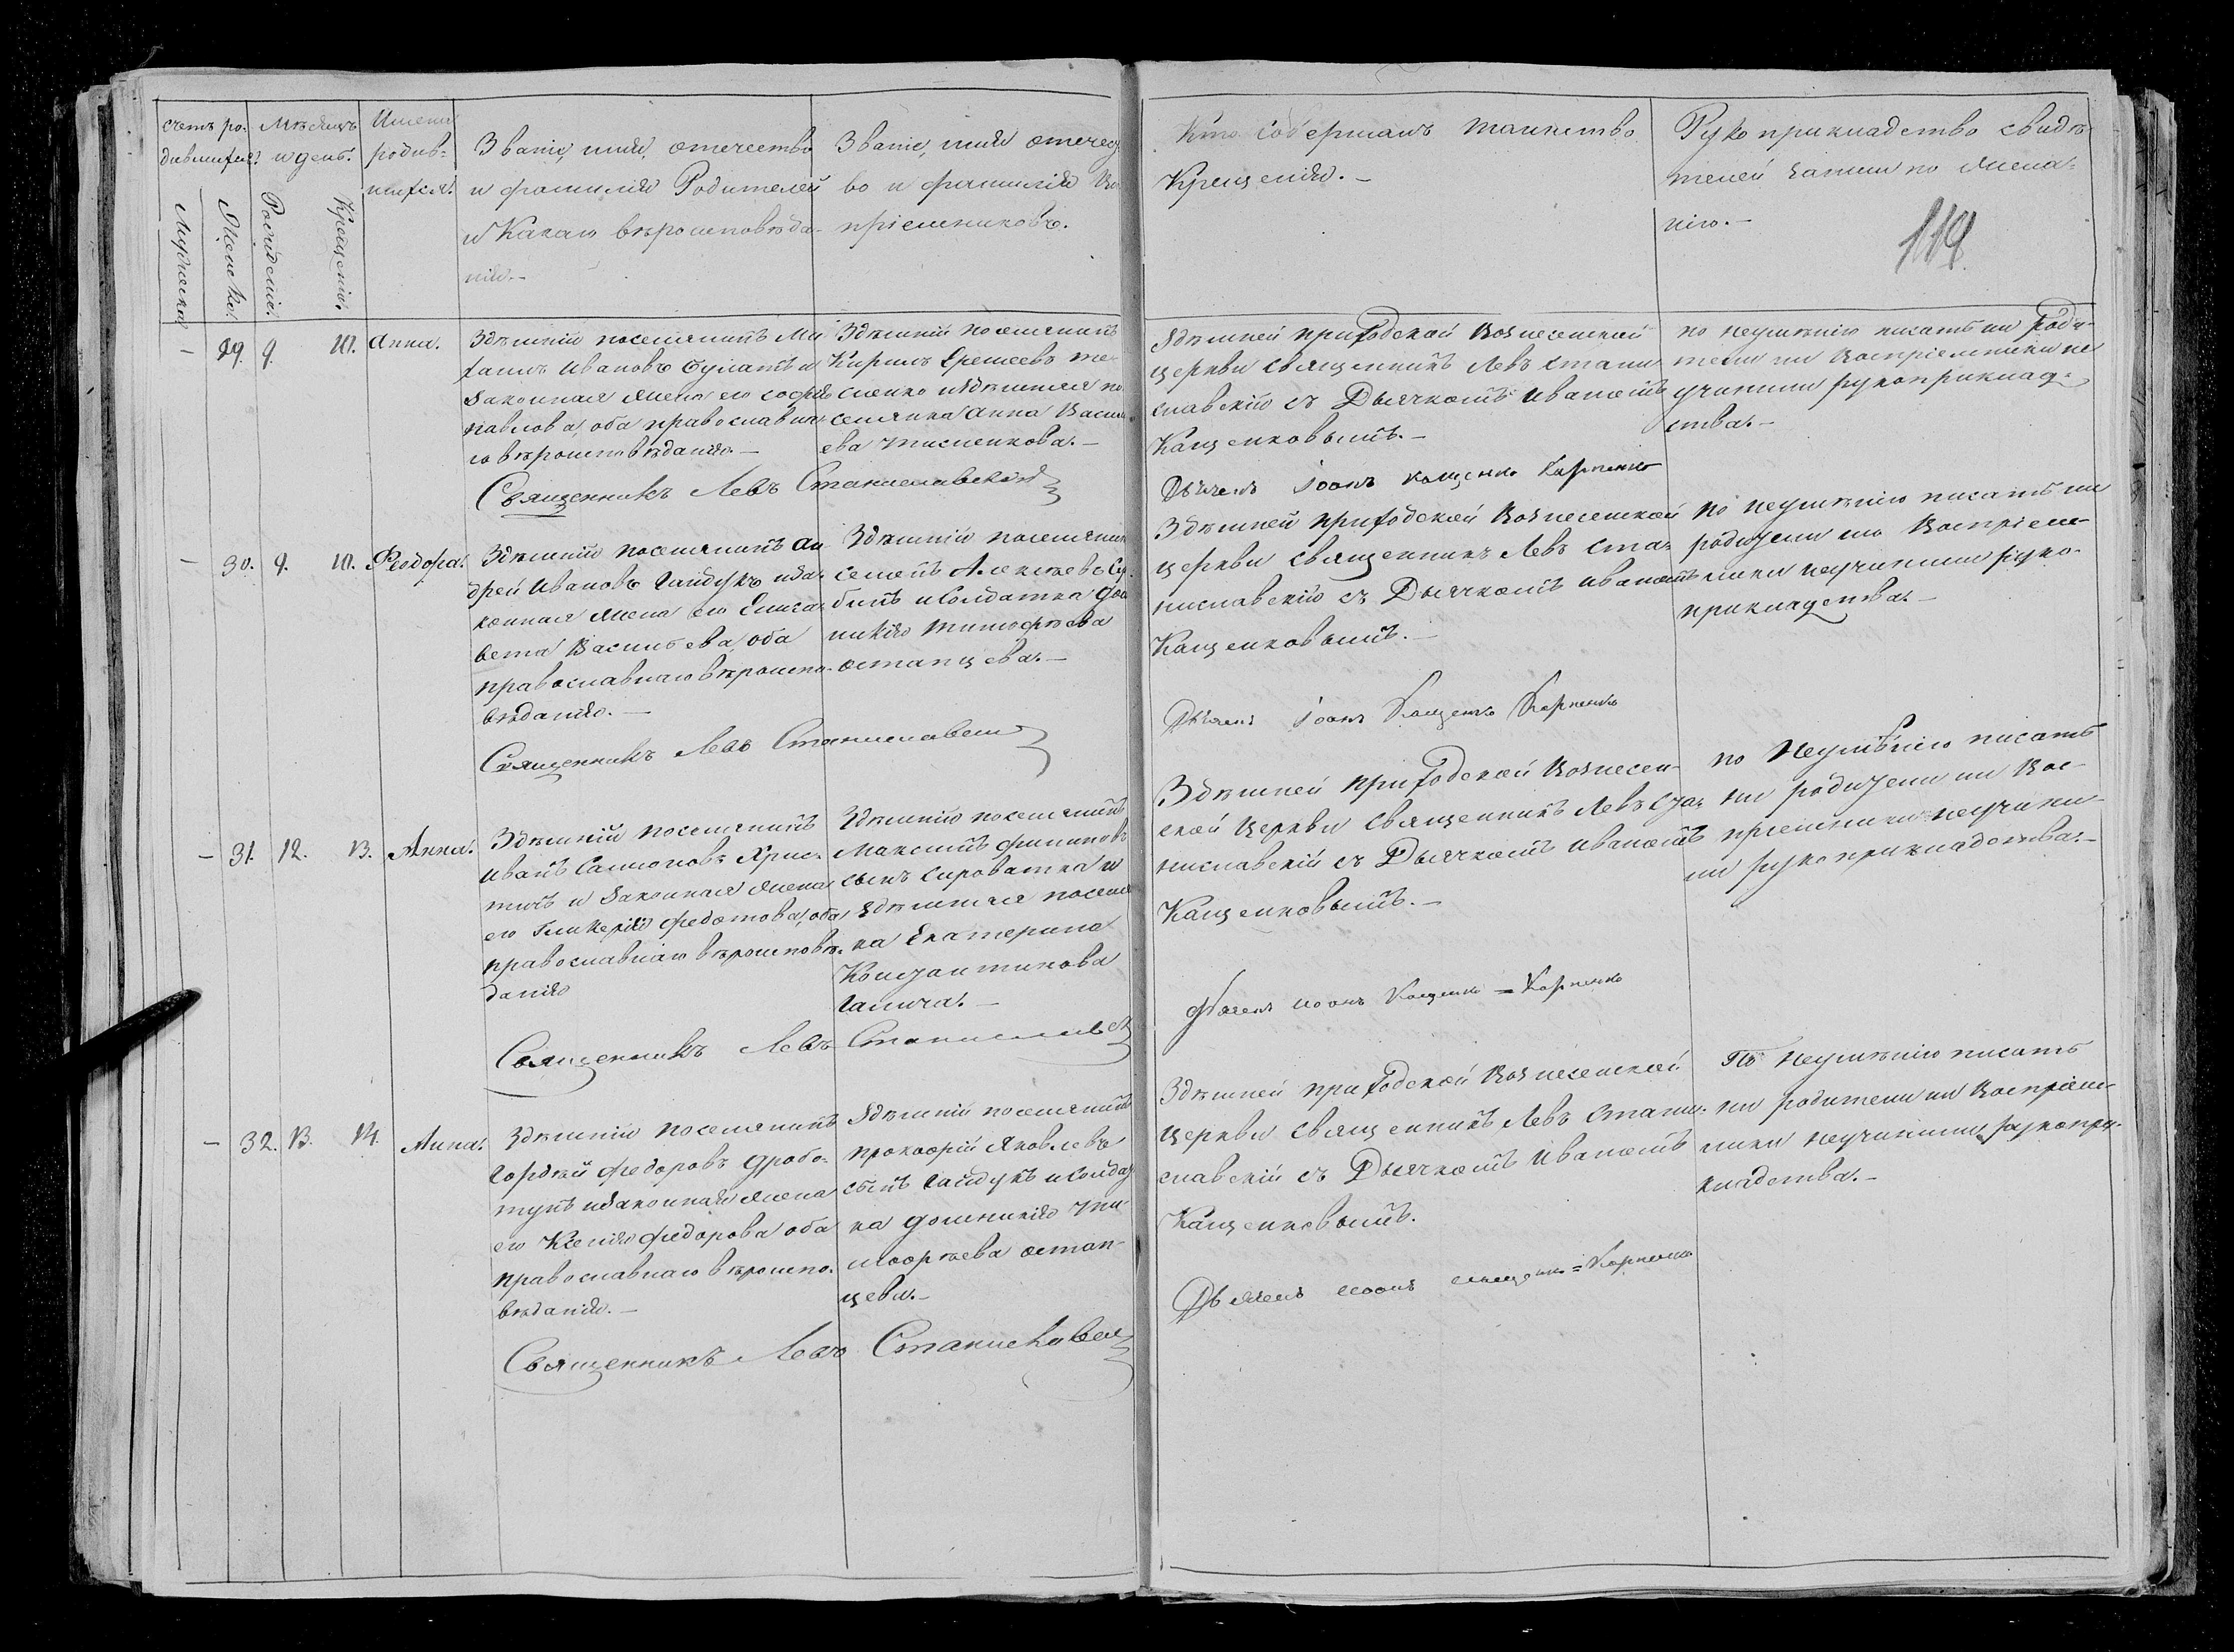 счетъ ро-
дившихся.
Мѣсяцъ
и день.
Имена
родив-
шихся.
Званіе, имя, отечество
и фамилія Родителей
и Какаго вѣроисповѣда-
нія.-
Званіе, имя отечест
во и фамилія Вос
пріемниковъ.
Кто совершалъ таинство
Крещенія.-
Рукоприкладство свидѣ
телей записи по Жела-
нію.-
119.
Мужеска
Женска.
Рожденія.
Крещенія.
- 29. 9. 10. Анна.
Здѣшній поселянинъ Ми
хаилъ Ивановъ Булатъ и
Законная Жена его Софія
Павлова, оба православна
го вѣроисповѣданія.-
Здѣшній поселянинъ
Кирилъ Еремеевъ те-
сленко и Здѣшняя по
селянка Анна Васил
ева тисленкова.-
Священникъ Левъ Станиславскій
Здѣшней приходской Вознесенской
церкви Священникъ Левъ Стани
славскій съ Дьячкомъ Иваномъ
Кащенковымъ.-
Дьячекъ Іоанъ Кащенко Карпенко
по неумѣнію писать ни роди-
тели ни Воспріемники не
учинили рукоприклад-
ства.-
- 30. 9. 10. Феодора.
Здѣшній поселянинъ Ан
дрей Ивановъ Гайдукъ и За-
конная Жена его Елиса-
вета Васильева, оба
православнаго вѣроиспо-
вѣданія.-
Здѣшній поселянин
Семенъ Алексѣевъ
и Солдатка Дом
никія Тимофѣева
остапцева.-
Священникъ Левъ Станиславски
Здѣшней приходской Вознесенской
церкви Священникъ Левъ Ста-
ниславскій съ Дьячкомъ Иваномъ
Кащенковымъ.-
Дьячекъ Іоанъ Кащенко Карпенко
по неумѣнію писать ни
родители ни Воспріем-
ники неучинили руко-
прикладства.-
- 31. 12. 13. Анна.
Здѣшній поселянинъ
Иванъ Самсоновъ Хрис-
тичъ и Законная Жена
его Гликерія Федотова, оба
православнаго вѣроисповѣ-
данія
Здѣшній поселянинъ
Максимъ Филиповъ
сынъ сироватка и
Здѣшняя поселян
ка Екатерина
Константинова
Галича.-
Священникъ Левъ Станиславск
Здѣшней приходской Вознесен-
ской Церкви Священникъ Левъ Ста-
ниславскій съ Дьячкомъ Иваномъ
Кащенковымъ.-
Дьячекъ Иоанъ Кащенко = Карпенко
по Неумѣнію писать
ни родители ни Вос-
пріемники неучини-
ли рукоприкладства.-
- 32. 13. 14. Анна.
Здѣшній поселянинъ
Гордѣй Федоровъ Дробо-
тунъ и Законная Жена
его Ксенія Федорова оба
православнаго вѣроиспо-
вѣданія.-
Здѣшній поселянинъ
Прокофій Яковлевъ
сынъ Гайдукъ и Солдат
ка Домникія Ти-
мофѣева остап-
цева.-
Священникъ Левъ Станиславск
Здѣшней приходской Вознесенской
Церкви Священникъ Левъ Стани-
славскій съ Дьячкомъ Иваномъ
Кащенковымъ.
Дьячекъ Иоанъ Кащенко = Карпенко
По неумѣнію писать
ни родители ни Воспріем-
ники неучинили рукопри-
кладства.-